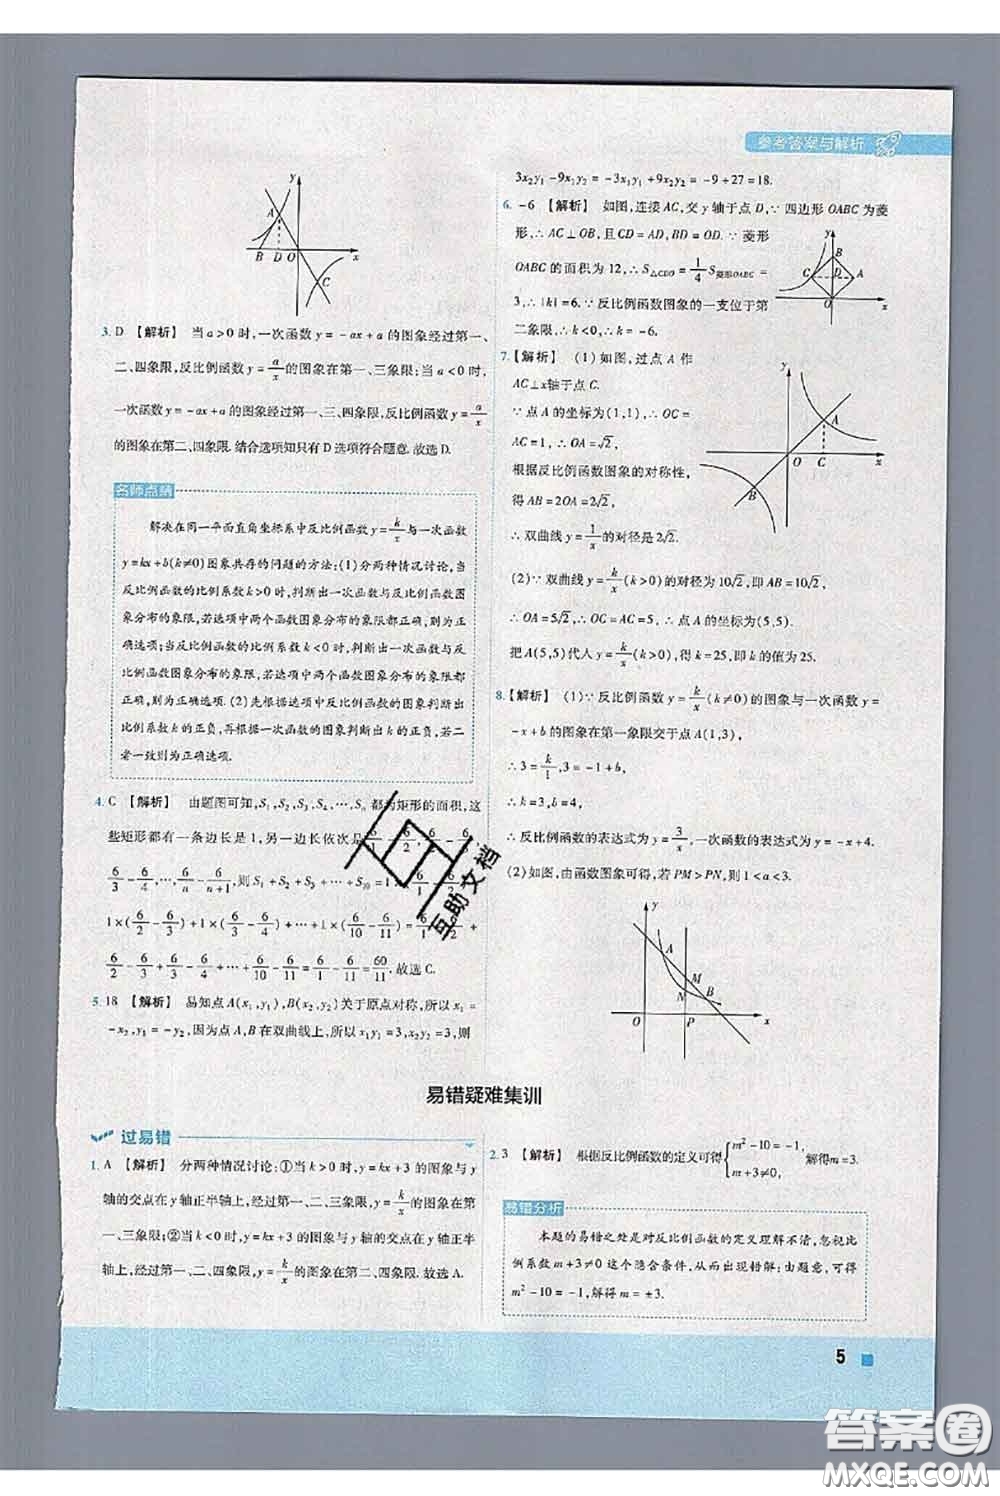 参考答案与解析
y
A
B D O x
C
3. D 【解析】 当 a>0 时,一次函数 y = -ax + a 的图象经过第一、
二、四象限,反比例函数 y = a/x 的图象在第一、三象限;当 a<0 时,
一次函数 y = -ax + a 的图象经过第一、三、四象限,反比例函数 y = a/x
的图象在第二、四象限. 结合选项知只有 D 选项符合题意. 故选 D.
名师点睛
解决在同一平面直角坐标系中反比例函数 y = k/x 与一次函数
y = kx + b(k≠0)图象共存的问题的方法:(1)分两种情况讨论,当
反比例函数的比例系数 k>0 时,判断出一次函数与反比例函数图
象分布的象限,若选项中两个函数图象分布的象限都正确,则为
正确选项;当反比例函数的比例系数 k<0 时,判断出一次函数与反
比例函数图象分布的象限,若选项中两个函数图象分布的象限都
正确,则为正确选项. (2)先根据选项中反比例函数的图象判断出
比例系数 k 的正负,再根据一次函数的图象判断出 k 的正负,若二
者一致则为正确选项.
4. C 【解析】 由题图可知,S₁,S₂,S₃,S₄,…,Sₙ 都为矩形的面积,这
些矩形都有一条边长是 1,另一边长依次是 6/1 - 6/2, 6/2 - 6/3,
6/3 - 6/4,…, 6/n - 6/(n+1),则 S₁ + S₂ + S₃ + … + S₁₀ = 1×(6/1 - 6/2) +
1×(6/2 - 6/3) + 1×(6/3 - 6/4) + … + 1×(6/10 - 6/11) = 6/1 - 6/2 +
6/2 - 6/3 + 6/3 - 6/4 + … + 6/10 - 6/11 = 6/1 - 6/11 = 60/11. 故选 C.
5. 18 【解析】 易知点 A(x₁,y₁),B(x₂,y₂)关于原点对称,所以 x₁ =
-x₂,y₁ = -y₂,因为点 A,B 在双曲线上,所以 x₁y₁ = 3,x₂y₂ = 3,则
3x₂y₁ - 9x₁y₂ = -3x₁y₁ + 9x₂y₂ = -9 + 27 = 18.
6. -6 【解析】 如图,连接 AC,交 y 轴于点 D,∵ 四边形 OABC 为菱
形,∴ AC⊥OB,且 CD = AD,BD = OD. ∵ 菱形
OABC 的面积为 12,∴ S△CDO = 1/4 S菱形OABC =
3,∴ |k| = 6. ∵ 反比例函数图象的一支位于第
二象限,∴ k<0,∴ k = -6.
y
B
C D A
O x
7. 【解析】 (1)如图,过点 A 作
AC⊥x轴于点 C.
∵ 点 A 的坐标为(1,1),∴ OC =
AC = 1,∴ OA = √2,
根据反比例函数图象的对称性,
得 AB = 2OA = 2√2,
∴ 双曲线 y = 1/x 的对径是 2√2.
y
A
O C x
B
(2)∵ 双曲线 y = k/x (k>0)的对径为 10√2,即 AB = 10√2,
∴ OA = 5√2,∴ OC = AC = 5,∴ 点 A 的坐标为(5,5).
把 A(5,5)代入 y = k/x (k>0),得 k = 25,即 k 的值为 25.
8. 【解析】 (1)∵ 反比例函数 y = k/x (k≠0)的图象与一次函数 y =
-x + b 的图象在第一象限交于点 A(1,3),
∴ 3 = k/1,3 = -1 + b,
∴ k = 3,b = 4,
∴ 反比例函数的表达式为 y = 3/x,一次函数的表达式为 y = -x + 4.
(2)如图,由函数图象可得,若 PM>PN,则 1<a<3.
y
A
M
N B
O P x
互助文档
易错疑难集训
过易错
1. A 【解析】 分两种情况讨论:①当 k>0 时,y = kx + 3 的图象与 y
轴的交点在 y 轴正半轴上,经过第一、二、三象限,y = k/x 的图象在第
一、三象限;②当 k<0 时,y = kx + 3 的图象与 y 轴的交点在 y 轴正半
轴上,经过第一、二、四象限,y = k/x 的图象在第二、四象限. 故选 A.
2. 3 【解析】 根据反比例函数的定义可得{m² - 10 = -1, m + 3≠0, 解得 m = 3.
易错分析
本题的易错之处是对反比例函数的定义理解不清,忽视比
例系数 m + 3≠0 这个隐含条件,从而出现错解:由题意,可得
m² - 10 = -1,解得 m = ±3.
5
答案圈
MXQE.COM